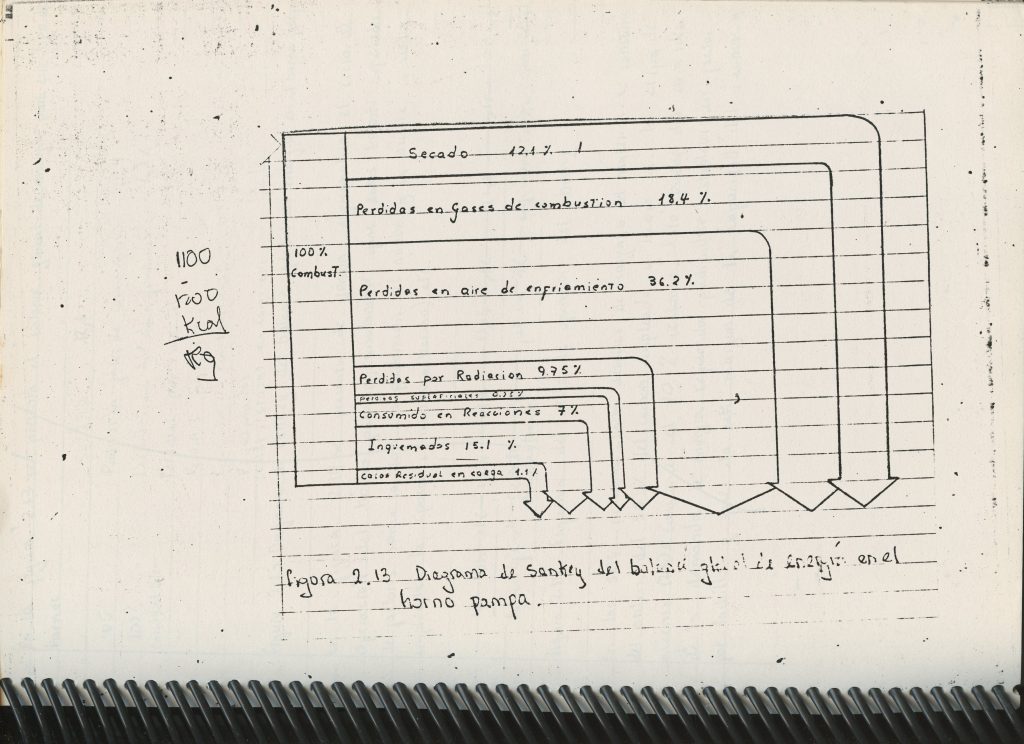 Secado 12.1 %
Perdidas en Gases de combustion 18,4 %.
100 %
Combust.
Perdidas en aire de enfriamiento 36.2 %
Perdidas por Radiacion 9.75 %
Perdidas superficiales 0.35 %
Consumido en Reacciones 7 %
Inquemados 15.1 %
Calor Residual en carga 1.1 %
1100
-
1200
Kcal
Kg
Figura 2.13 Diagrama de Sankey del balance global de energía en el
horno pampa.